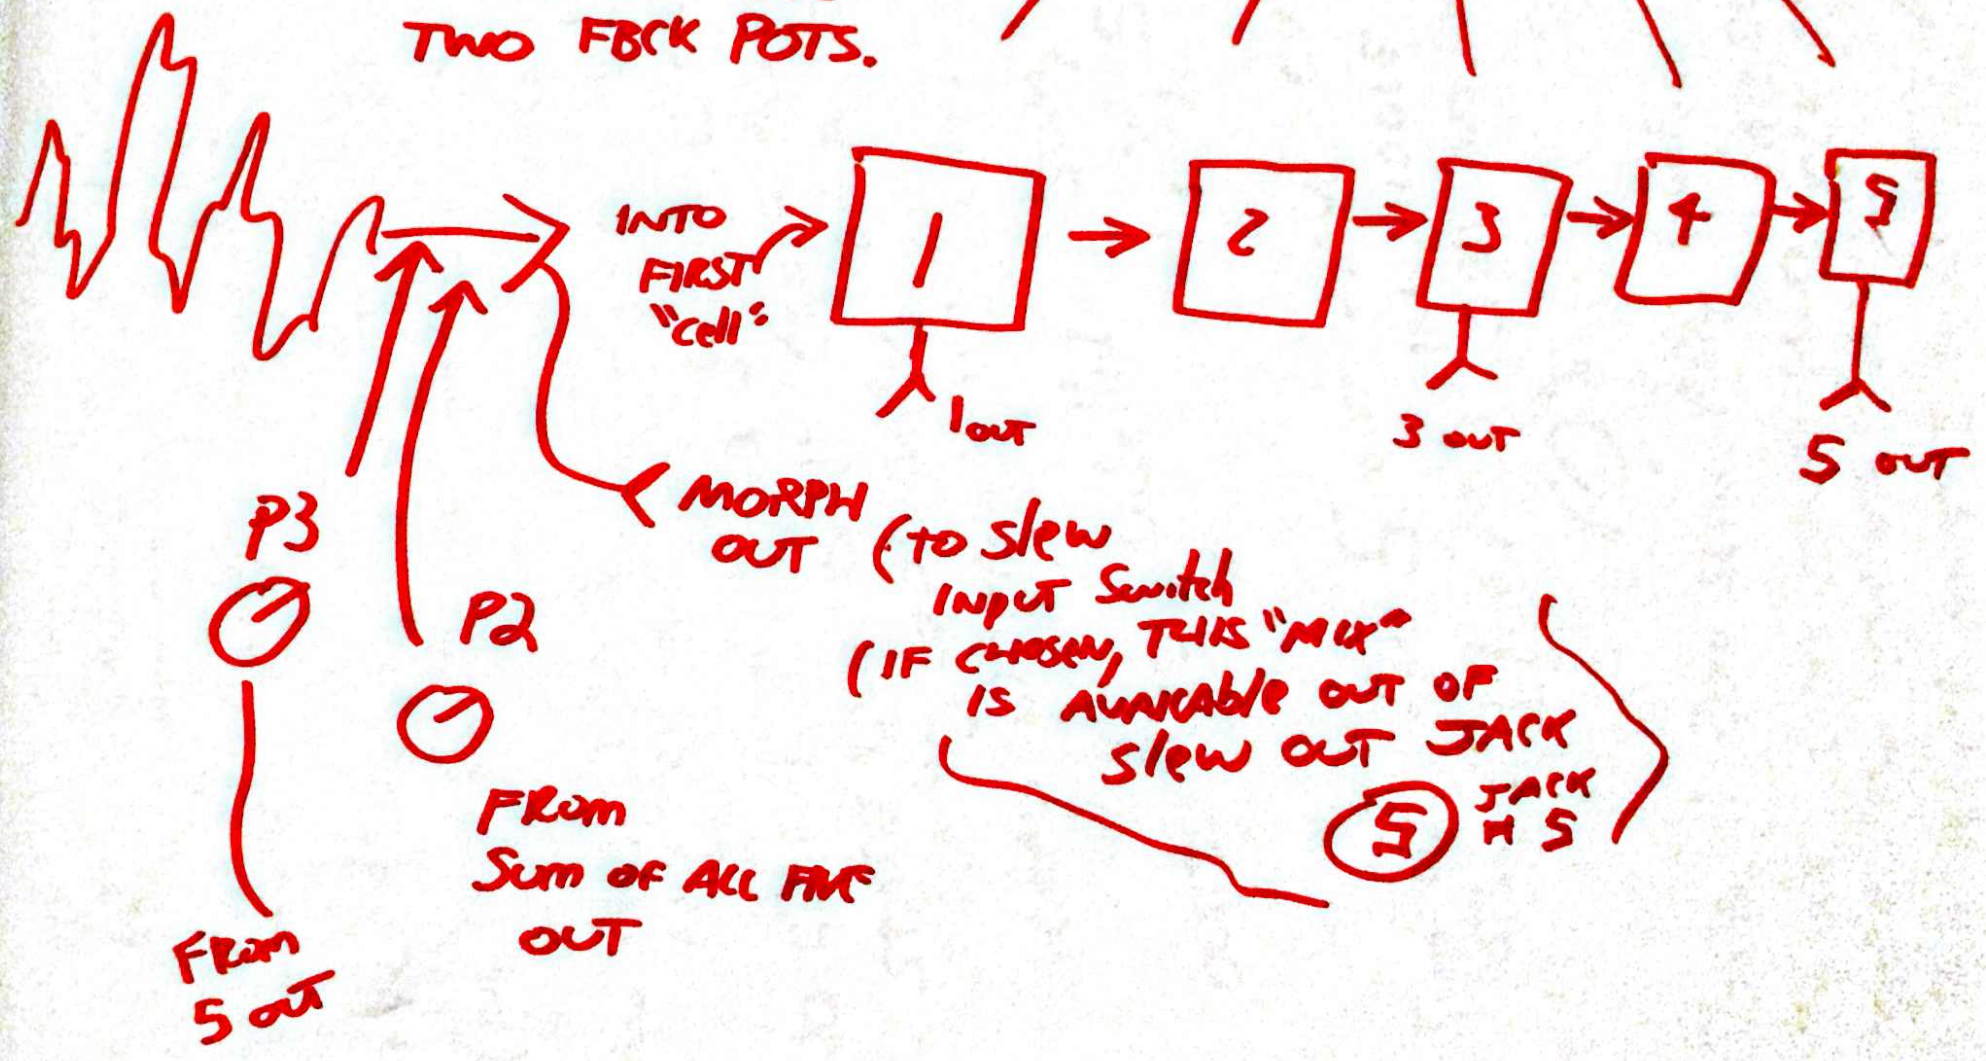 TWO FBCK POTS.
INTO
FIRST
"Cell"
1
2
3
4
5
1 OUT
3 OUT
5 OUT
MORPH
OUT
(TO Slew
INPUT Switch
(IF CHOSEN, THIS "MIX"
IS AVAILABLE OUT OF
Slew OUT JACK
5
JACK
# 5
P3
P2
FROM
Sum OF ALL FIVE
OUT
FROM
5 OUT